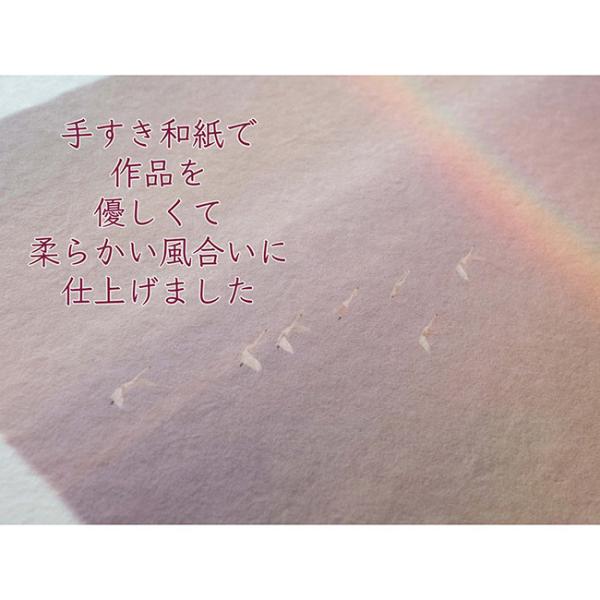 手すき和紙で
作品を
優しくて
柔らかい風合いに
仕上げました